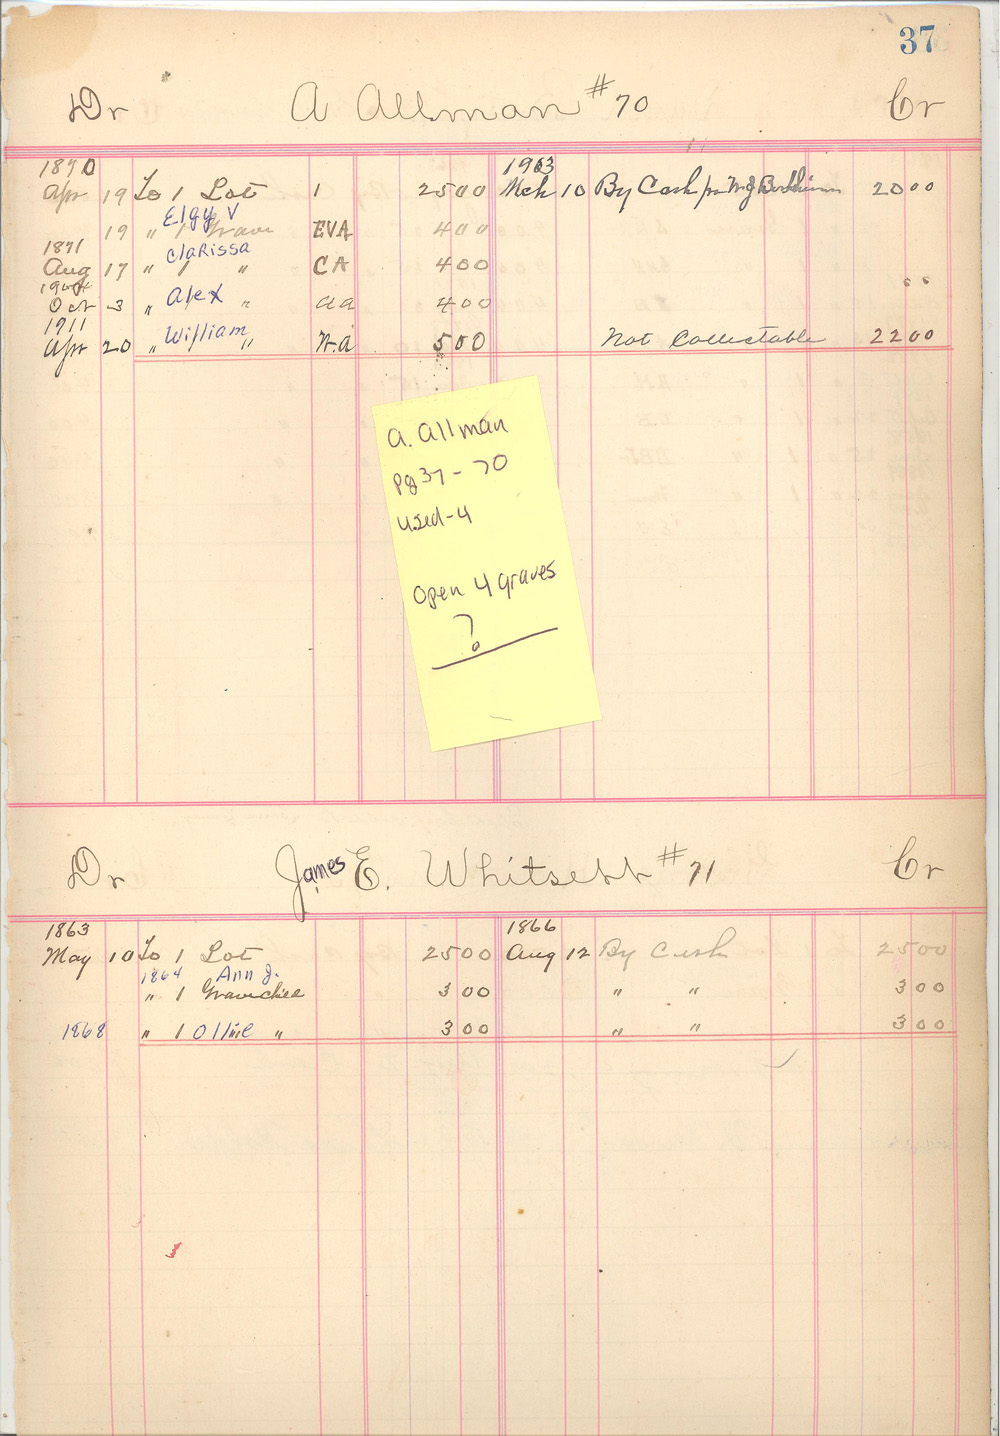 37
Dr A Allman #70 Cr
1870 1903
Apr 19 To 1 Lot 1 2500 Mch 10 By Cash pr W J 2000
Elgy V
19 " 1 Grave EVA 400
1871 Clarissa
Aug 17 " 1 " CA 400
Oct 3 " Alex " aa 400
1911 William
Apr 20 " " W.a 500 Not Collectable 2200
A. Allman
pg 37 - 70
used - 4
Open 4 graves
?
Dr James E. Whitsett #71 Cr
1863 1866
May 10 To 1 Lot 2500 Aug 12 By Cash 2500
1864 Ann J.
" 1 Grave child 300 " " 300
1868 " 1 Ollie " 300 " " 300